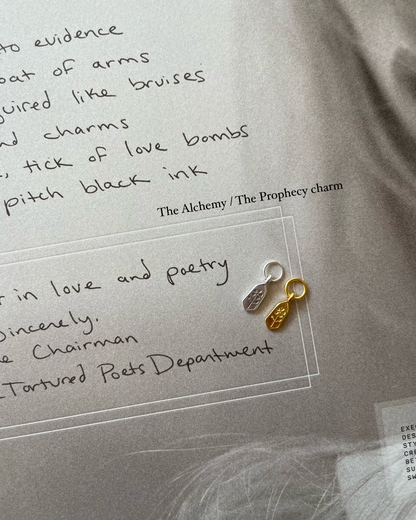 to evidence
oat of arms
quired like bruises
nd charms
, tick of love bombs
pitch black ink
The Alchemy / The Prophecy charm
r in love and poetry
Sincerely,
e Chairman
Tortured Poets Department
EXE
DES
STY
CRE
BE
SU
SW